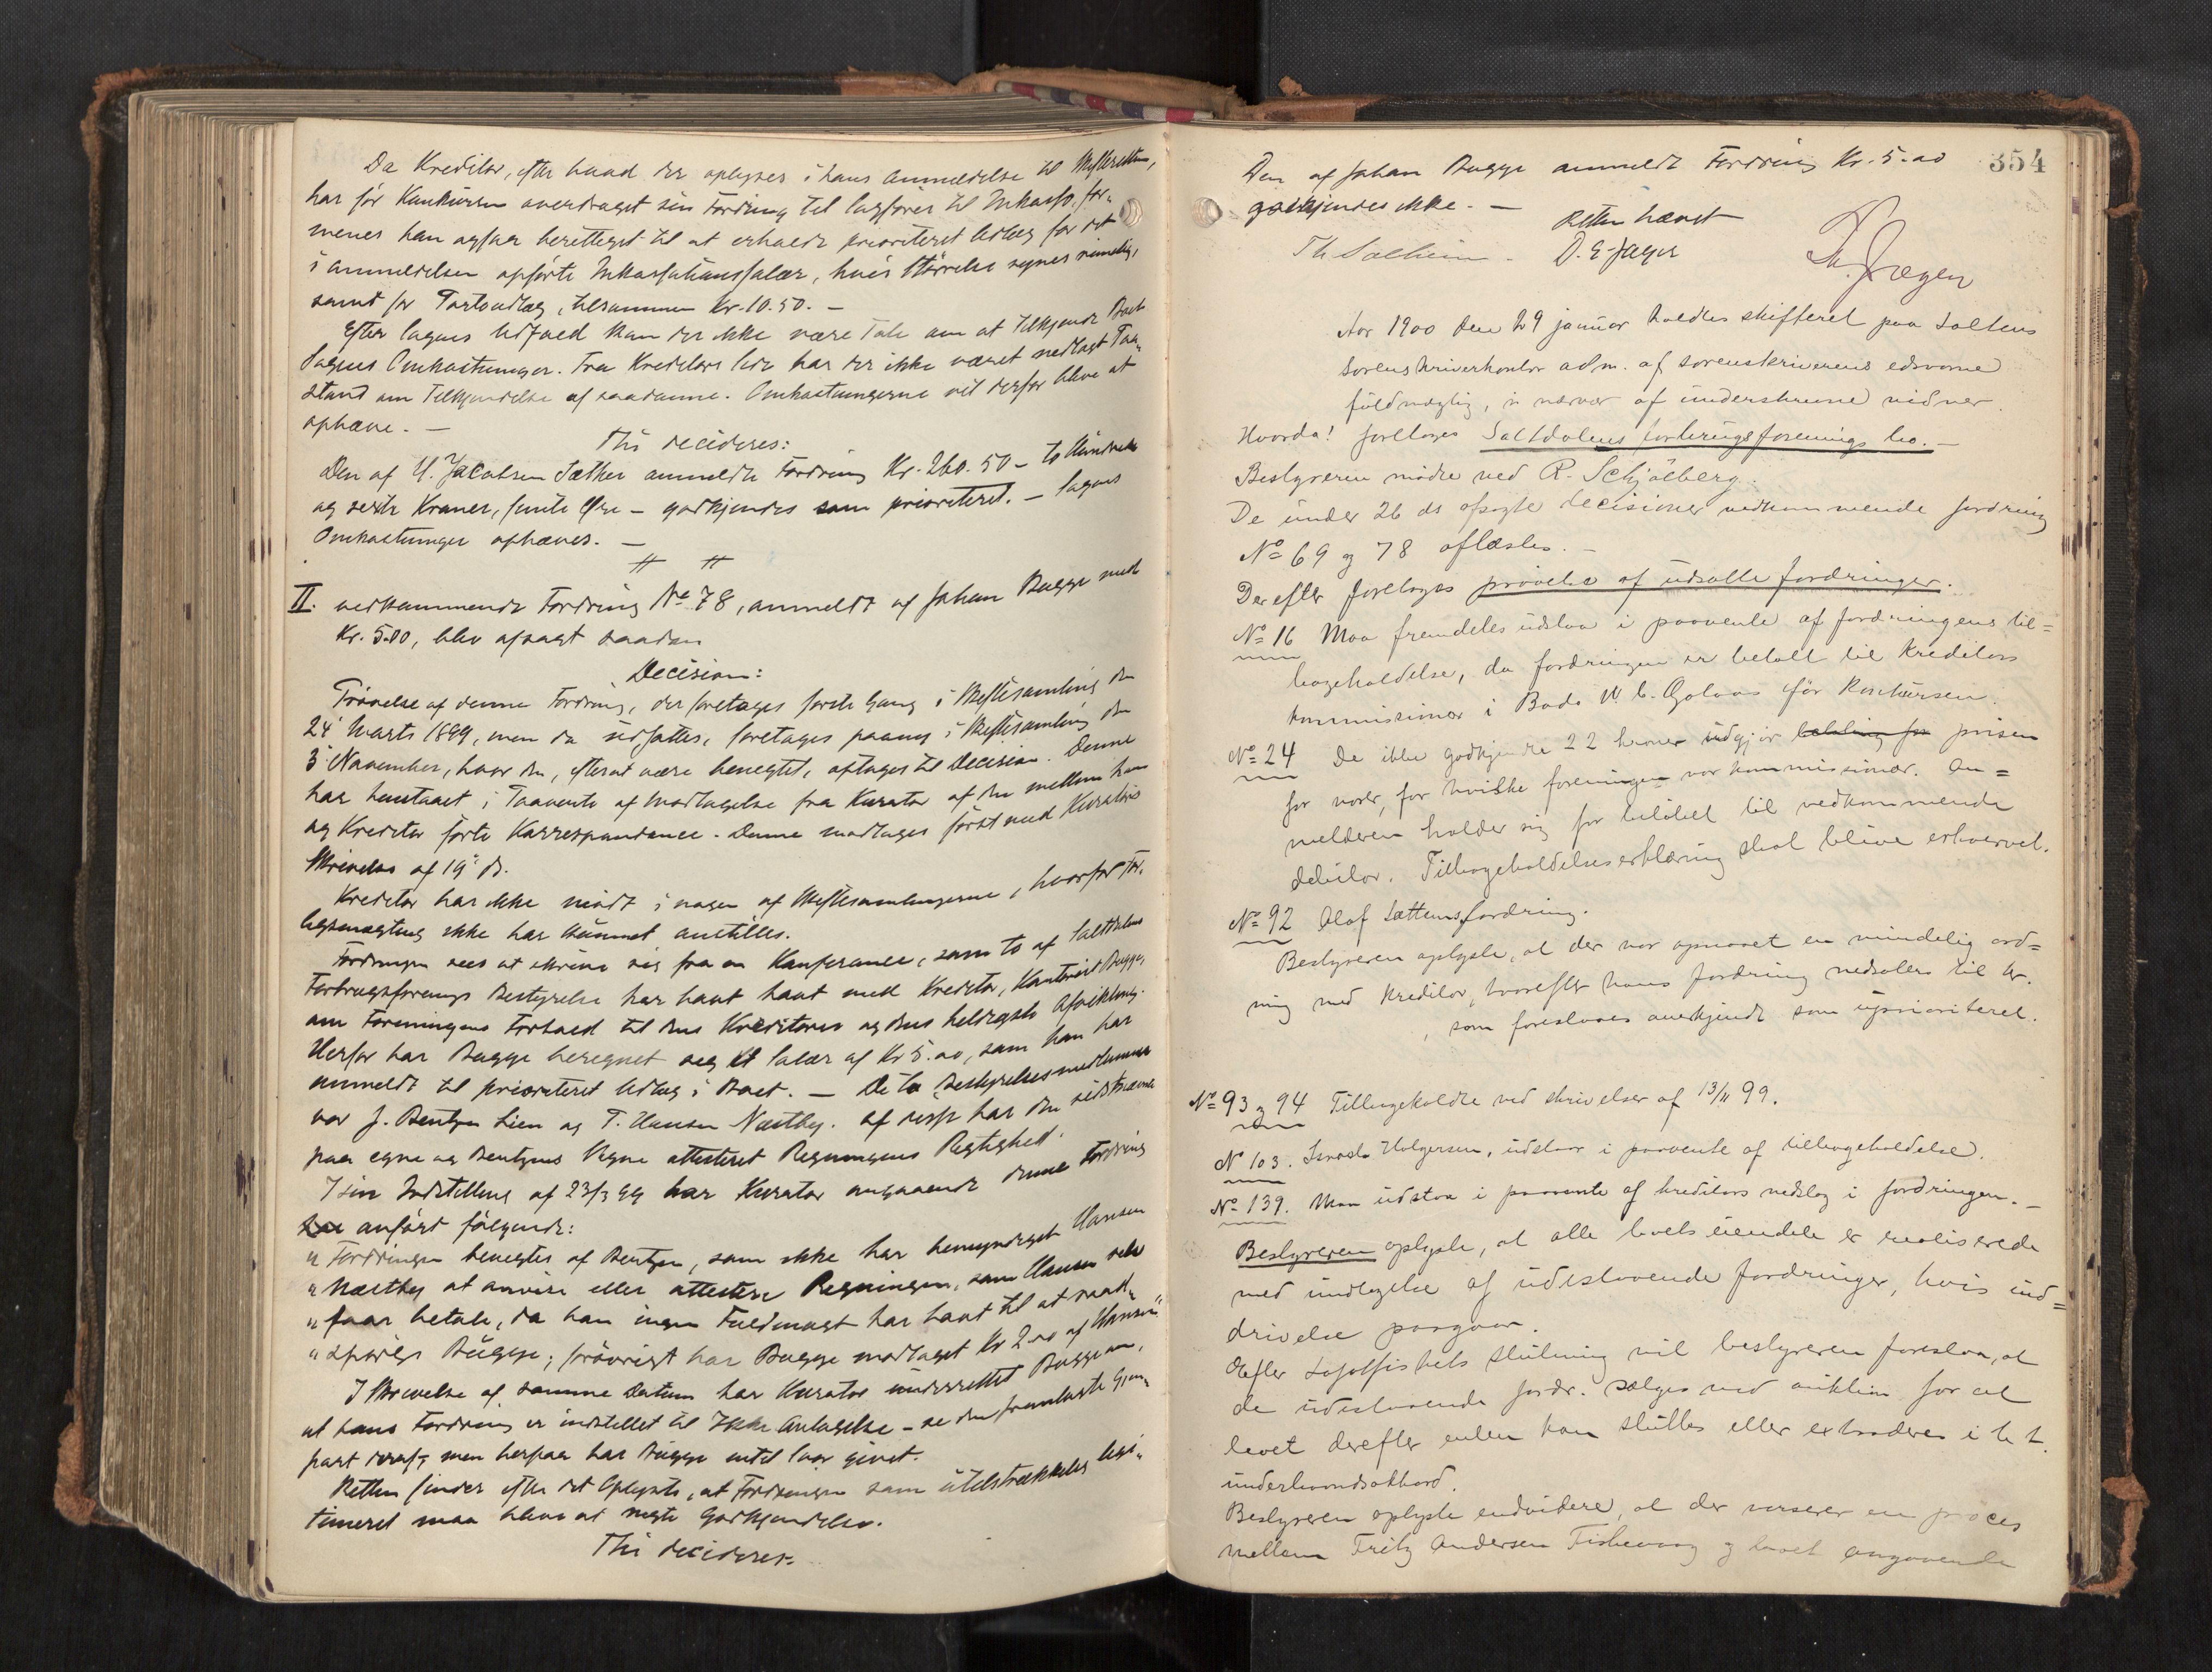 Da Kreditor, efter hvad der oplyses i hans Anmeldelse til Skifteretten,
har før Konkursen overdraget sin Fordring til Sagfører til Inkasso, for-
menes han ogsaa berettiget til at erholde prioriteret Udlæg for det
i Anmeldelsen opførte Inkassationssalær, hvis Størrelse synes rimelig,
samt for Portoudlæg, tilsammen Kr. 10.50. —
Efter Sagens Udfald kan der ikke være Tale om at tilkjende Boet
Sagens Omkostninger. Fra Kreditors Side har der ikke været nedlagt Paa-
stand om Tilkjendelse af saadanne. Omkostningerne vil derfor blive at
ophæve. —
Thi decideres:
Den af U. Jacobsen Sæther anmeldte Fordring Kr. 260.50 – to Hundrede
og sexti Kroner, femti Øre – godkjendes som prioriteret. – Sagens
Omkostninger ophæves. —
II. vedkommende Fordring No 78, anmeldt af Johan Bugge med
Kr. 5.00, blev afsagt saadan
Decision:
Prøvelse af denne Fordring, der foretages første Gang i Skiftesamling den
24' Marts 1899, men da udsattes, foretages paany i Skiftesamling den
3' November, hvor den, efterat være benegtet, optages til Decision. Denne
har henstaaet i Paavente af Modtagelse fra Kurator af den mellem ham
og Kreditor førte Korrespondance. Denne modtages først med Kurators
Skrivelse af 19' ds.
Kreditor har ikke mødt i nogen af Skiftesamlingerne, hvorfor For-
ligsmægling ikke har kunnet anstilles.
Fordringen sees at skrive sig fra en Konferance, som to af Saltdalens
Forbrugsforenings Bestyrelse har havt med Kreditor, Kontorist Bugge,
om Foreningens Forhold til dens Kreditorer og dens heldigste Afvikling.
Herfor har Bugge beregnet sig et Salær af Kr 5.00, som han har
anmeldt til prioriteret Udlæg i Boet. — De to Bestyrelsesmedlemmer
var J. Bentzen Lien og P. Hansen Næstby. Af disse har den sidstnævnte
paa egne og Bentzens Vegne attesteret Regningens Rigtighed.
I sin Indstilling af 23/3 99 har Kurator angaaende denne Fordring
anført følgende:
"Fordringen benegtes af Bentzen, som ikke har bemyndiget Hansen
"Næstby at anvise eller attestere Regningen, som Hansen selv
"faar betale, da han ingen Fuldmagt har havt til at raad-
"spørge Bugge; forøvrigt har Bugge modtaget Kr 2.00 af Hansen"
I Skrivelse af samme Datum har Kurator underrettet Bugge om,
at hans Fordring er indstillet til Ikke Antagelse – se den fremlagte Gjen-
part deraf, men herpaa har Bugge intet Svar givet.
Retten finder efter det Oplyste, at Fordringen som utilstrækkelig legi-
timeret maa blive at negte Godkjendelse.
Thi decideres:
354
Den af Johan Bugge anmeldt Fordring Kr. 5.00
godkjendes ikke. —
Retten hævet
Th Solheim. D. E. Jager
Aar 1900 den 29 januar holdtes skifteret paa Saltens
Sorenskriverkontor adm. af sorenskriverens edsvorne
fuldmægtig, i nærvær af underskrevne vidner.
Hvorda! foretoges Saltdalens forbrugsforenings bo. —
Bestyreren mødte ved R. Schjölberg.
De under 26 ds afsagte decisioner vedkommende fordring
No 69 og 78 oplæstes. —
Derefter foretoges prövelse af udsatte fordringer.
No 16 Maa fremdeles udstaa i paavente af fordringens til=
bageholdelse, da fordringen er betalt til Kreditors
kommissionær i Bodø W. C. før konkursen.
No 24 De ikke godkjendte 22 kroner udgjør betaling for prisen
for varer, for hvilke foreningen var kommissionær. An=
melderen holder sig for beløbet til vedkommende
debitor. Tilbageholdelseserklæring skal blive erhvervet.
No 92 Olaf Sættems fordring.
Bestyreren oplyste, at der var opnaaet en mindelig ord=
ning med kreditor, hvorefter hans fordring nedsættes til kr.
, som foreslaaes anerkjendt som uprioriteret.
No 93 og 94 Tilbageholdte ved skrivelser af 13/11 99.
No 103. Holgersen, udstaar i paavente af tilbageholdelse.
No 139. Maa udstaa i paavente af kreditors nedslag i fordringen. —
Bestyreren oplyste, at alle boets eiendele er realiserede
med undtagelse af udestaaende fordringer, hvis ind=
drivelse paagaar.
Efter Lofotfiskets slutning vil bestyreren foreslaa, at
de udestaaende fordr. sælges ved auktion for at
boet derefter enten kan sluttes eller extraderes i h. t.
underhaandsakkord.
Bestyreren oplyste endvidere, at der verserer en proces
mellem Fritz Andersen Fiskevaag og boet angaaende